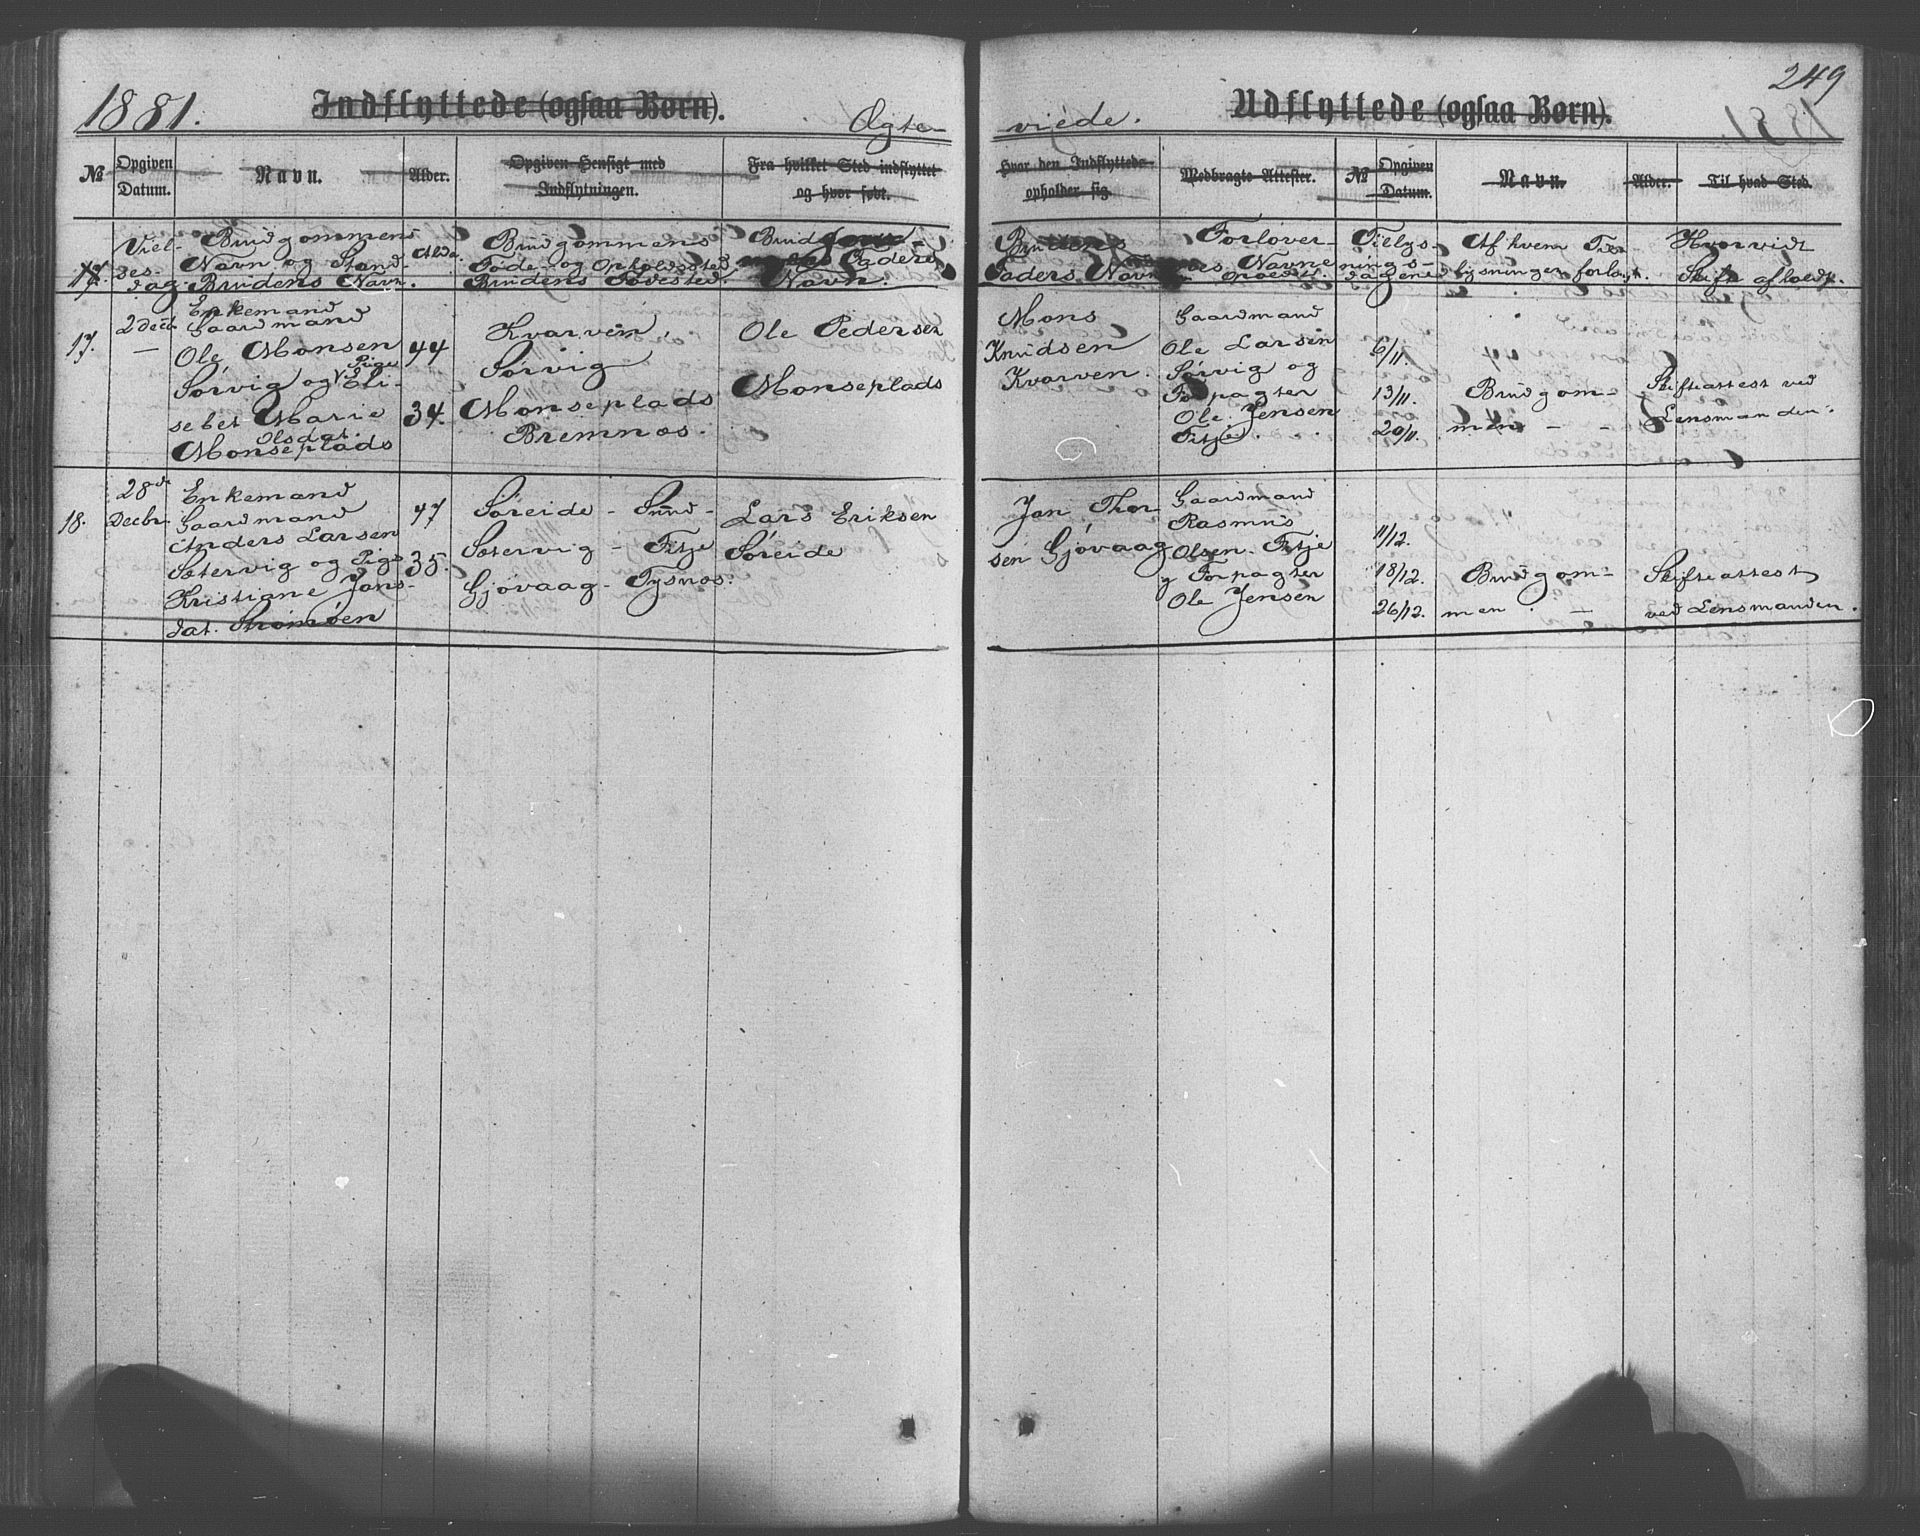 1881.
Indflyttede (ogsaa Børn).
Ægte
№
Opgiven
Datum.
Navn.
Alder.
Opgiven Hensigt med
Indflytningen.
Fra hvilket Sted indflyttet
og hvor født.
Viel-
ses-
dag
Brudgommens
Navn og Stand
Brudens Navn.
Brudgommens
Føde- og Opholdssted
Brudens Fødested
Navn.
17.
2 Decb
—
Enkemand
Gaardmand
Ole Monsen
Sørvig og Pige
Eli-
sebet Marie
Olsdat.
Monseplads
44
34.
Kvarven,
Sørvig
Monseplads
Bremnæs.
Ole Pedersen
Monseplads
18.
28de
Decbr
Enkemand
Gaardmand
Anders Larsen
Sætervig og Pige
Kristiane Jans-
dat. Strømøen
47
35.
Søreide - Sund-
Sætervig - Fitje
Gjøvaag - Tysnæs.
Lars Eriksen
Søreide
249
viede.
Udflyttede (ogsaa Børn).
1881.
Hvor den Indflyttede
opholder sig.
Medbragte Attester.
№
Opgiven
Datum.
Navn.
Alder.
Til hvad Sted.
Brudens
Faders Navn
Forlover-
nes Navne
Tillys-
nings-
dagene
Af hvem Til-
lysningen forlagt.
Hvorvidt
Skift afholdt.
Mons
Knudsen
Kvarven.
Gaardmand
Ole Larsen
Sørvig og
Forpagter
Ole Jensen
Fitje.
6/11.
13/11.
20/11.
Brudgom-
men - -
Skifteattest ved
Lensmanden.
Jan Thor
sen Gjøvaag
Gaardmand
Rasmus
Olsen Fitje
Forpagter
Ole Jensen
11/12.
18/12.
26/12.
Brudgom-
men . -
Skifteattest
ved Lensmanden.